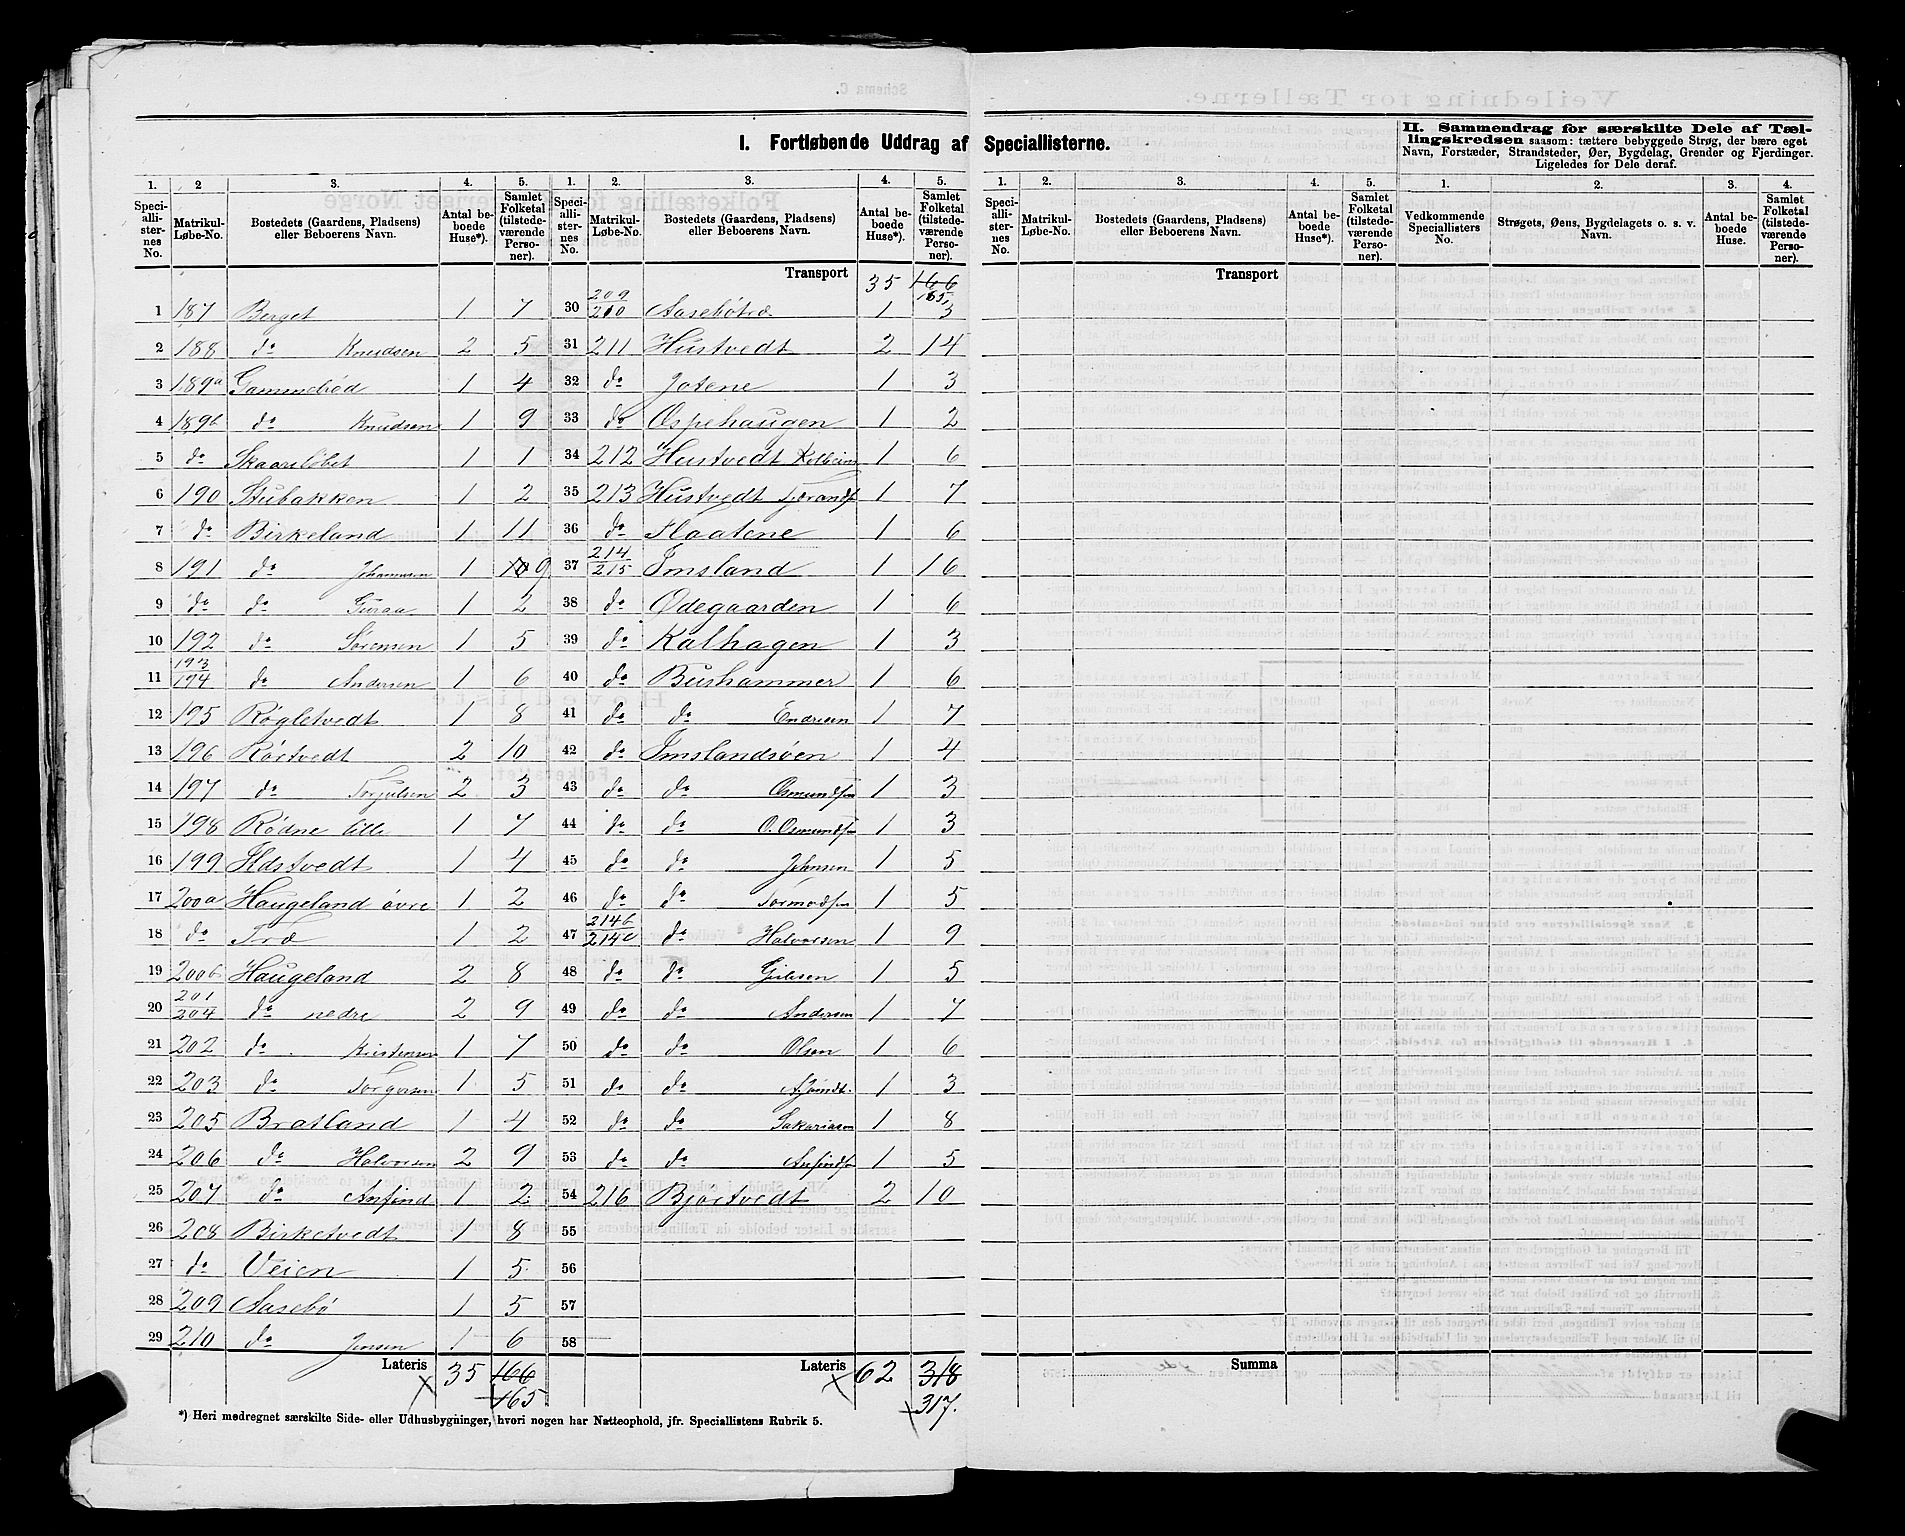 I. Fortløbende Uddrag af Speciallisterne.
II. Sammendrag for særskilte Dele af Tællingskredsen saasom: tættere bebyggede Strøg, der bære eget Navn, Forstæder, Strandsteder, Øer, Bygdelag, Grender og Fjerdinger. Ligeledes for Dele deraf.
1. 2 3. 4. 5. 1. 2. 3. 4. 5. 1. 2. 3. 4. 5. 1. 2. 3. 4.
Speciallisternes No. Matrikul-Løbe-No. Bostedets (Gaardens, Pladsens) eller Beboerens Navn. Antal beboede Huse*). Samlet Folketal (tilstedeværende Personer).
Speciallisternes No. Matrikul-Løbe-No. Bostedets (Gaardens, Pladsens) eller Beboerens Navn. Antal beboede Huse*). Samlet Folketal (tilstedeværende Personer).
Speciallisternes No. Matrikul-Løbe-No. Bostedets (Gaardens, Pladsens) eller Beboerens Navn. Antal beboede Huse*). Samlet Folketal (tilstedeværende Personer).
Vedkommende Speciallisters No. Strøgets, Øens, Bygdelagets o. s. v. Navn. Antal beboede Huse. Samlet Folketal (tilstedeværende Personer).
1 187 Berget 1 7
2 188 do Knudsen 2 5
3 189a Gammelrød 1 4
4 189b do Knudsen 1 9
5 do Skaarsløbet 1 1
6 190 Stubakken 1 2
7 do Birkeland 1 11
8 191 do Johannesen 1 10 9
9 do do Guraa 1 2
10 192 do Sørensen 1 5
11 193/194 do Andersen 1 6
12 195 Røgletvedt 1 8
13 196 Rørtvedt 2 10
14 197 do Torjulsen 2 3
15 198 Rødne lille 1 7
16 199 Udstvedt 1 4
17 200a Haugeland øvre 1 2
18 do Træ 1 2
19 200b Haugeland 2 8
20 201/204 do nedre 2 9
21 202 do Kristensen 1 7
22 203 do Torgersen 1 5
23 205 Bratland 1 4
24 206 do Halvorsen 2 9
25 207 do Anfind 1 2
26 208 Birketvedt 1 8
27 do Veien 1 5
28 209 Aasebø 1 5
29 210 do Jensen 1 6
Lateris 35 166 165
Transport 35 166 165
30 209/210 Aasebøtræ 1 3
31 211 Hustvedt 2 14
32 do Jotene 1 3
33 do Ospehaugen 1 2
34 212 Hustvedt 1 6
35 213 Hustvedt 1 7
36 do Flaatene 1 6
37 214/215 Imsland 1 16
38 do Ødegaarden 1 6
39 do Kalhagen 1 3
40 do Bushammer 1 6
41 do do Endresen 1 7
42 do Imslandsøen 1 4
43 do do Osmundsen 1 3
44 do do O. Osmundsen 1 3
45 do do Johnsen 1 5
46 do do Tormodsen 1 5
47 214b/214c do Halvorsen 1 9
48 do do 1 5
49 do do Andersen 1 7
50 do do Olsen 1 6
51 do do 1 3
52 do do Sakariasen 1 8
53 do do Anfindsen 1 5
54 216 Bjortvedt 2 10
55
56
57
58
Lateris 62 318 317.
Transport
Summa
*) Heri medregnet særskilte Side- eller Udhusbygninger, hvori nogen har Natteophold, jfr. Speciallistens Rubrik 5.